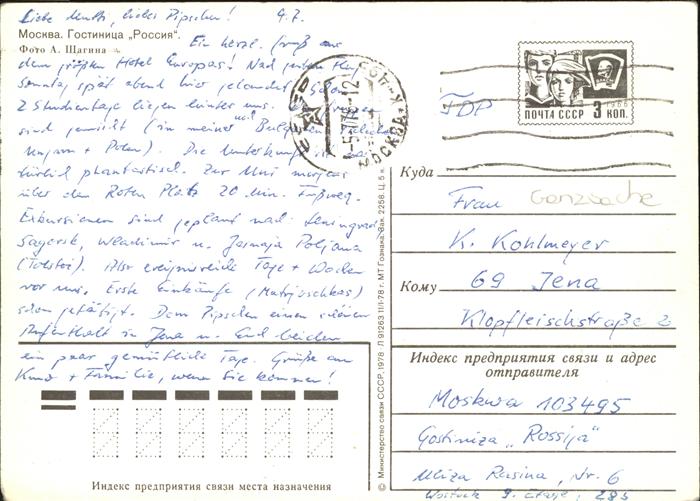 Liebe Mutti, liebes Pipschen! 4.7.
Москва. Гостиница „Россия".
Фото А. Шагина
Ein herzl. Gruß aus
dem größten Hotel Europas! Nach gutem Flug
Sonntag spät abend hier gelandet. Schon
2 Studientage liegen hinter uns.
sind gemischt (in meiner
Ungarn + Polen). Die Unterkunft ist
phantastisch. Zur Uni morgens
über den Roten Platz 20 Min. Fußweg.
Exkursionen sind geplant nach Leningrad,
Sagorsk, Wladimir u. Jasnaja Poljana
(Tolstoi). Also ereignisreiche Tage + Wochen
vor uns. Erste Einkäufe (Matrjoschkas)
schon getätigt. Dem Pipschen einen schönen
Aufenthalt in Jena u. Euch beiden
ein paar gemütliche Tage. Grüße an
Knud + Familie, wenn Sie kommen!
Индекс предприятия связи места назначения
© Министерство связи СССР, 1978 Л 91263 11/I-78 г. МТ Гознака. Зак. 2256. Ц. 5 к.
СССР
МОСКВА
ПОЧТА СССР 3 КОП.
1966
DDP
Куда
Frau
K. Kohlmeyer
Кому
69 Jena
Klopfleischstraße 2
Индекс предприятия связи и адрес
отправителя
Moskwa 103495
Gostiniza „Rossija"
Uliza Rasina, Nr. 6
Wostock 9. Etage, 285